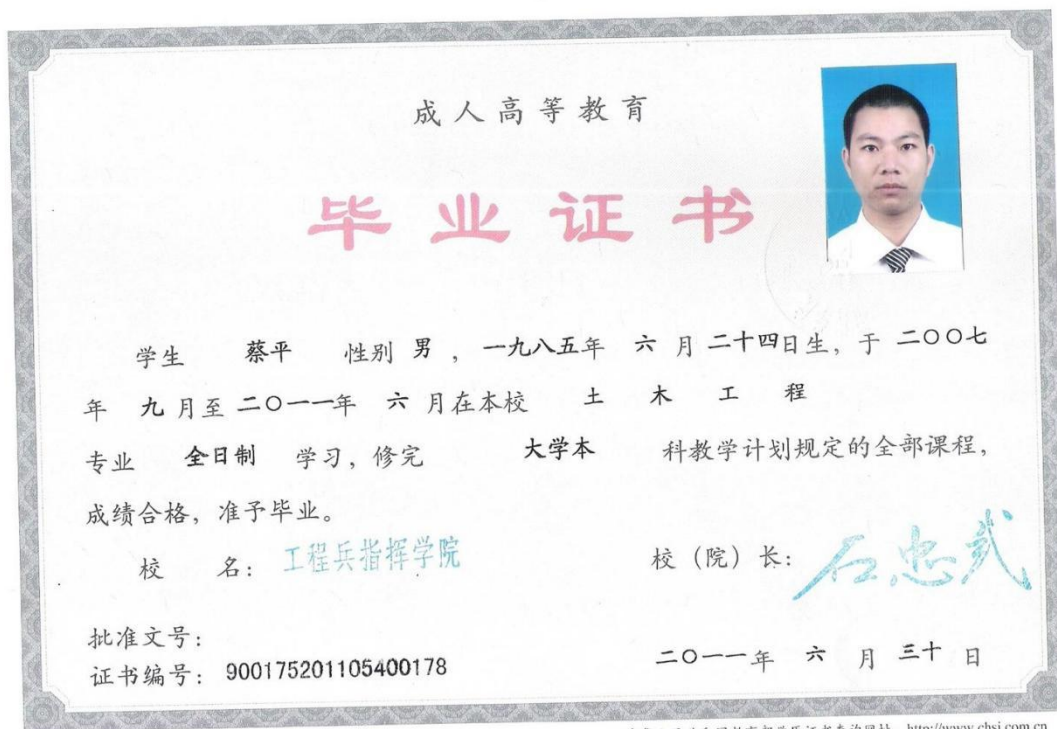 成人高等教育
毕业证书
学生 蔡平 性别 男 ，一九八五年 六 月 二十四日生，于 二〇〇七
年 九 月至 二〇一一年 六 月在本校 土 木 工 程
专业 全日制 学习，修完 大学本 科教学计划规定的全部课程，
成绩合格，准予毕业。
校 名： 工程兵指挥学院 校（院）长： 石忠武
批准文号：
证书编号： 900175201105400178 二〇一一年 六 月 三十 日
学历证书查询网站 http://www.chsi.com.cn